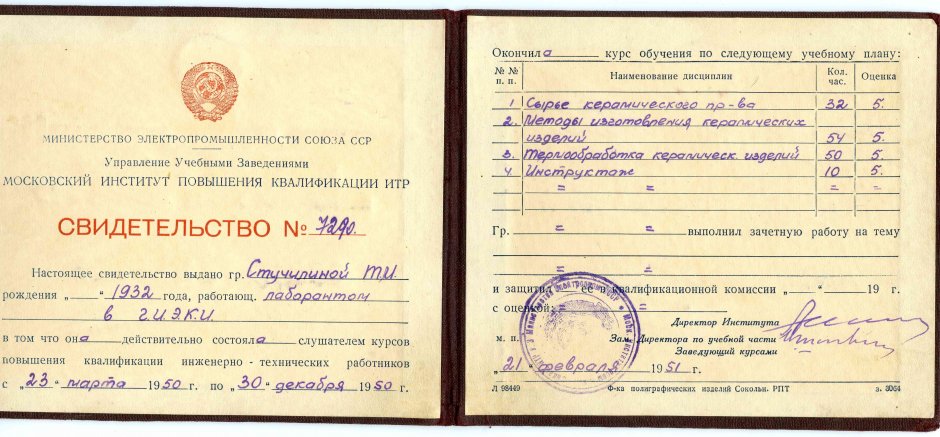 МИНИСТЕРСТВО ЭЛЕКТРОПРОМЫШЛЕННОСТИ СОЮЗА ССР
Управление Учебными Заведениями
МОСКОВСКИЙ ИНСТИТУТ ПОВЫШЕНИЯ КВАЛИФИКАЦИИ ИТР
СВИДЕТЕЛЬСТВО № 7290.
Настоящее свидетельство выдано гр. Стучилиной Т.И.
рождения „ “ 1932 года, работающ. лаборантом
в Г.И.Э.К.И.
в том что она действительно состояла слушателем курсов
повышения квалификации инженерно-технических работников
с „23“ марта 1950 г. по „30“ декабря 1950 г.
Окончила курс обучения по следующему учебному плану:
№ № п. п. Наименование дисциплин Кол. час. Оценка
1 Сырье керамического пр-ва 32 5.
2. Методы изготовления керамических
изделий 54 5.
3. Термообработка керамическ. изделий 50 5.
4 Инструктаж 10 5.
= = = =
Гр. = = выполнил зачетную работу на тему
= =
и защитил ее в квалификационной комиссии „ “ 19 г.
с оценкой: =
Директор Института
м. п. Зам. Директора по учебной части
Заведующий курсами
„21“ февраля 1951 г.
Л 98449 Ф-ка полиграфических изделий Сокольн. РПТ з. 3064